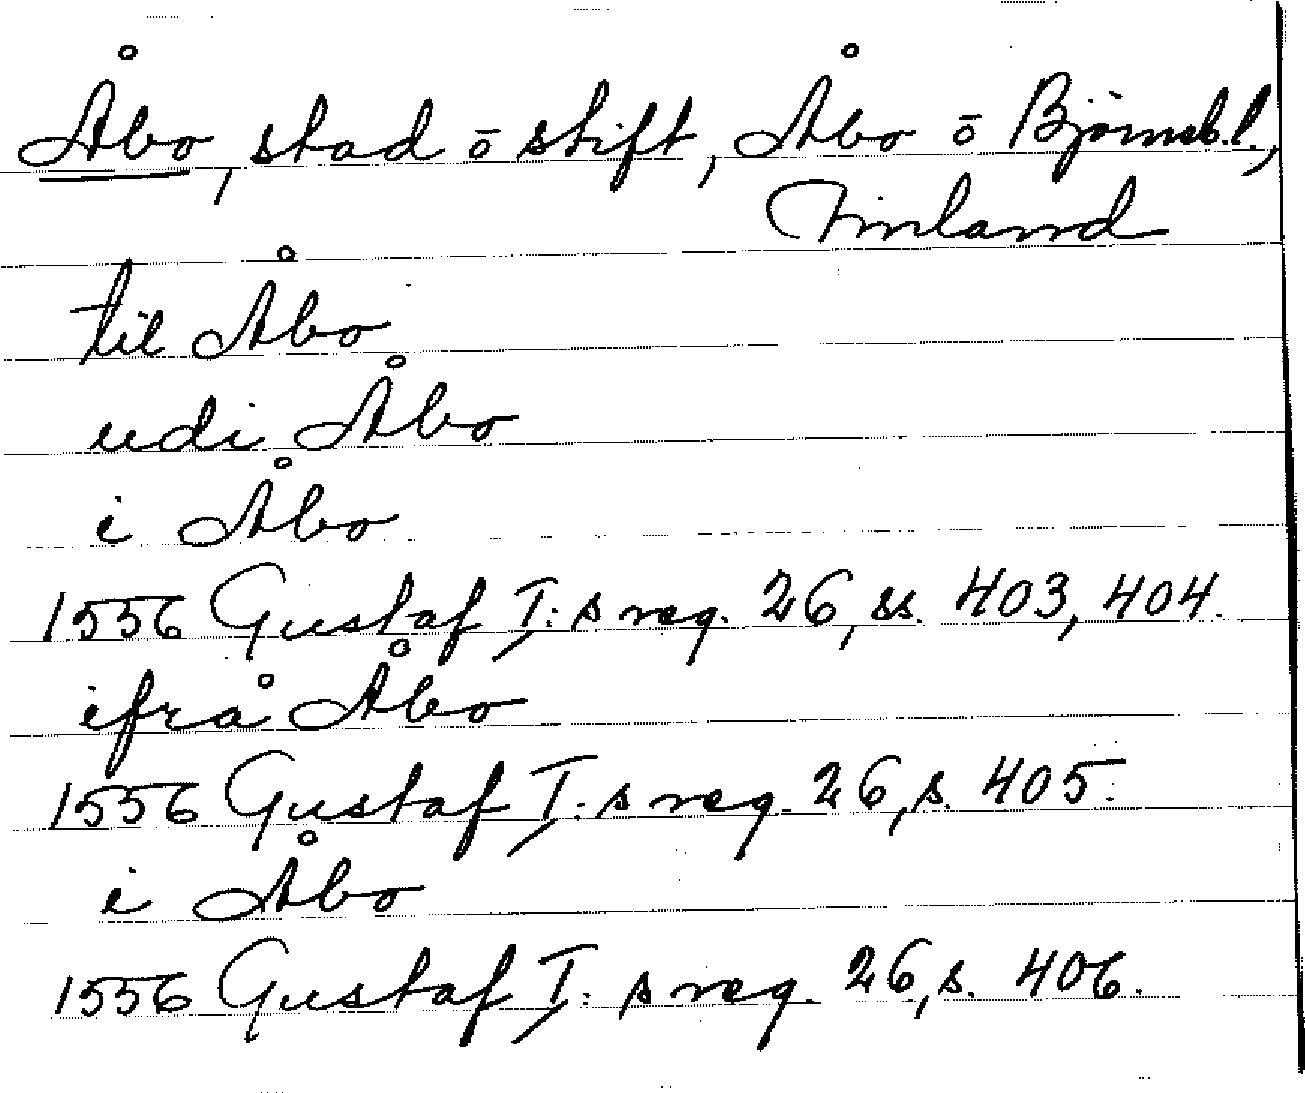 Åbo, stad ō stift, Åbo ō Björneb.l.,
Finland
til Åbo
udi Åbo
i Åbo
1556 Gustaf I:s reg. 26, ss. 403, 404.
ifrå Åbo
1556 Gustaf I:s reg. 26, s. 405.
i Åbo
1556 Gustaf I:s reg. 26, s. 406.